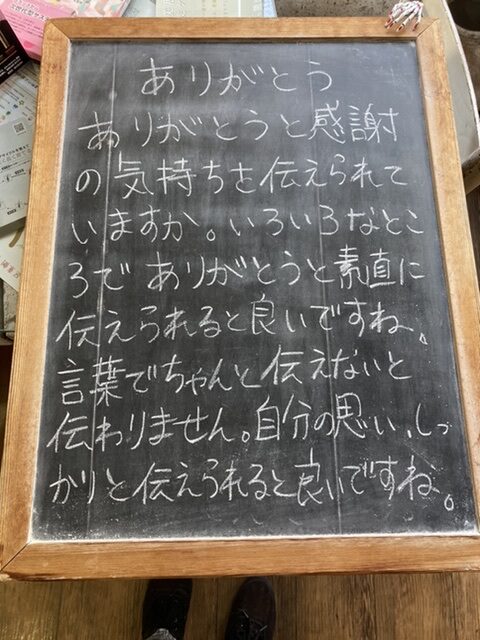 ありがとう
ありがとうと感謝
の気持ちを伝えられて
いますか。いろいろなとこ
ろでありがとうと素直に
伝えられると良いですね。
言葉でちゃんと伝えないと
伝わりません。自分の思い、しっ
かりと伝えられると良いですね。